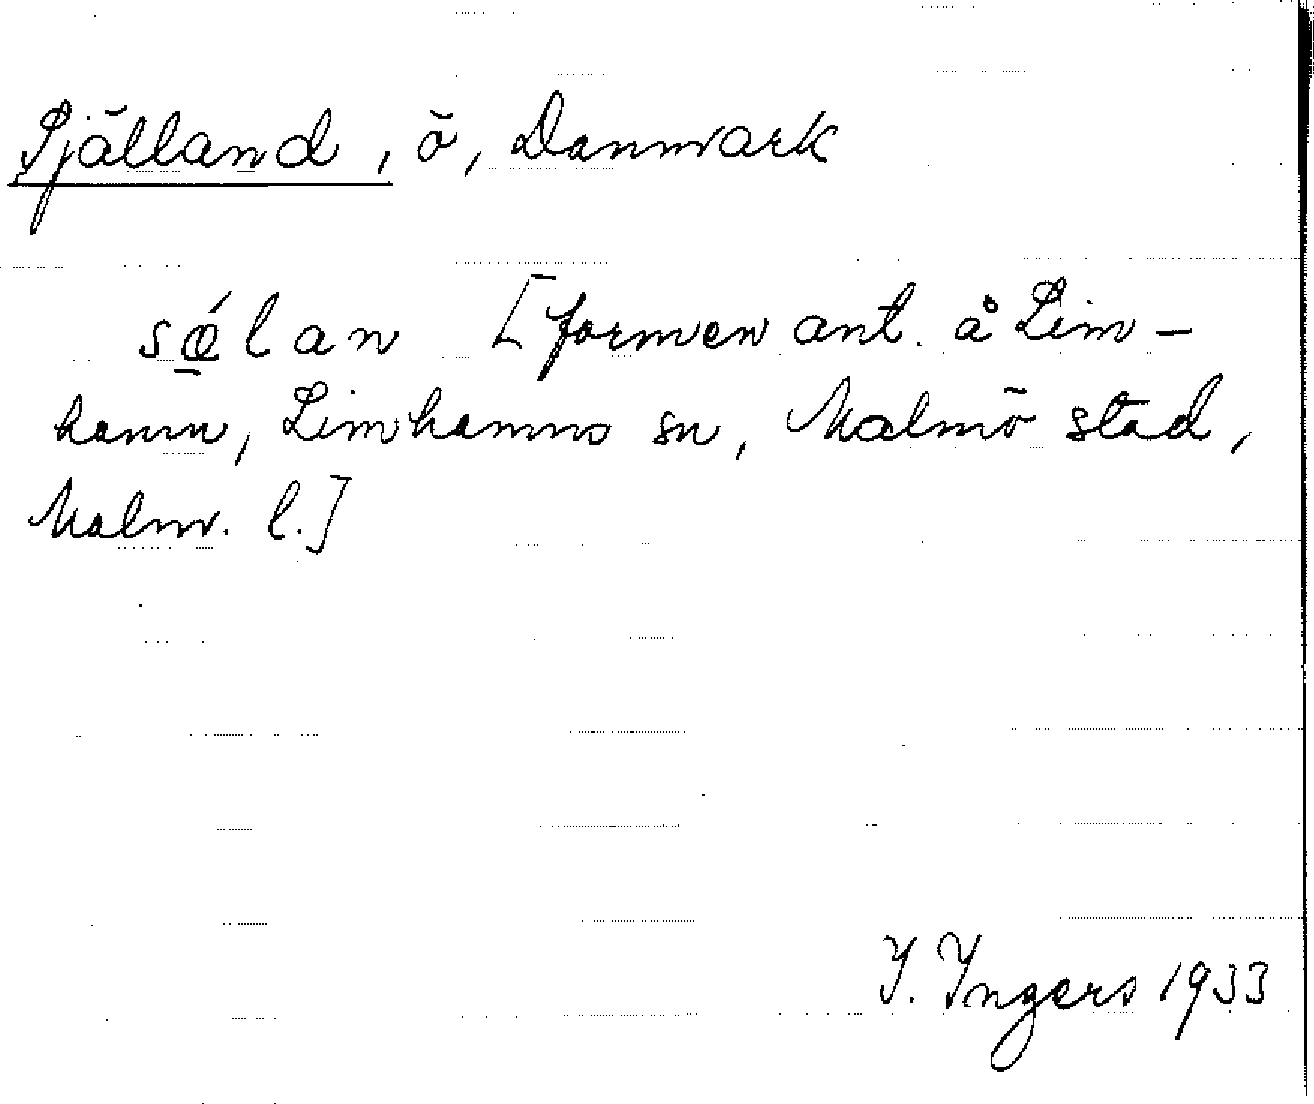 Själland, ö, Danmark
sǽ̱lan [formen ant. å Lim-
hamn, Limhamns sn, Malmö stad,
Malm. l.]
I. Ingers 1933